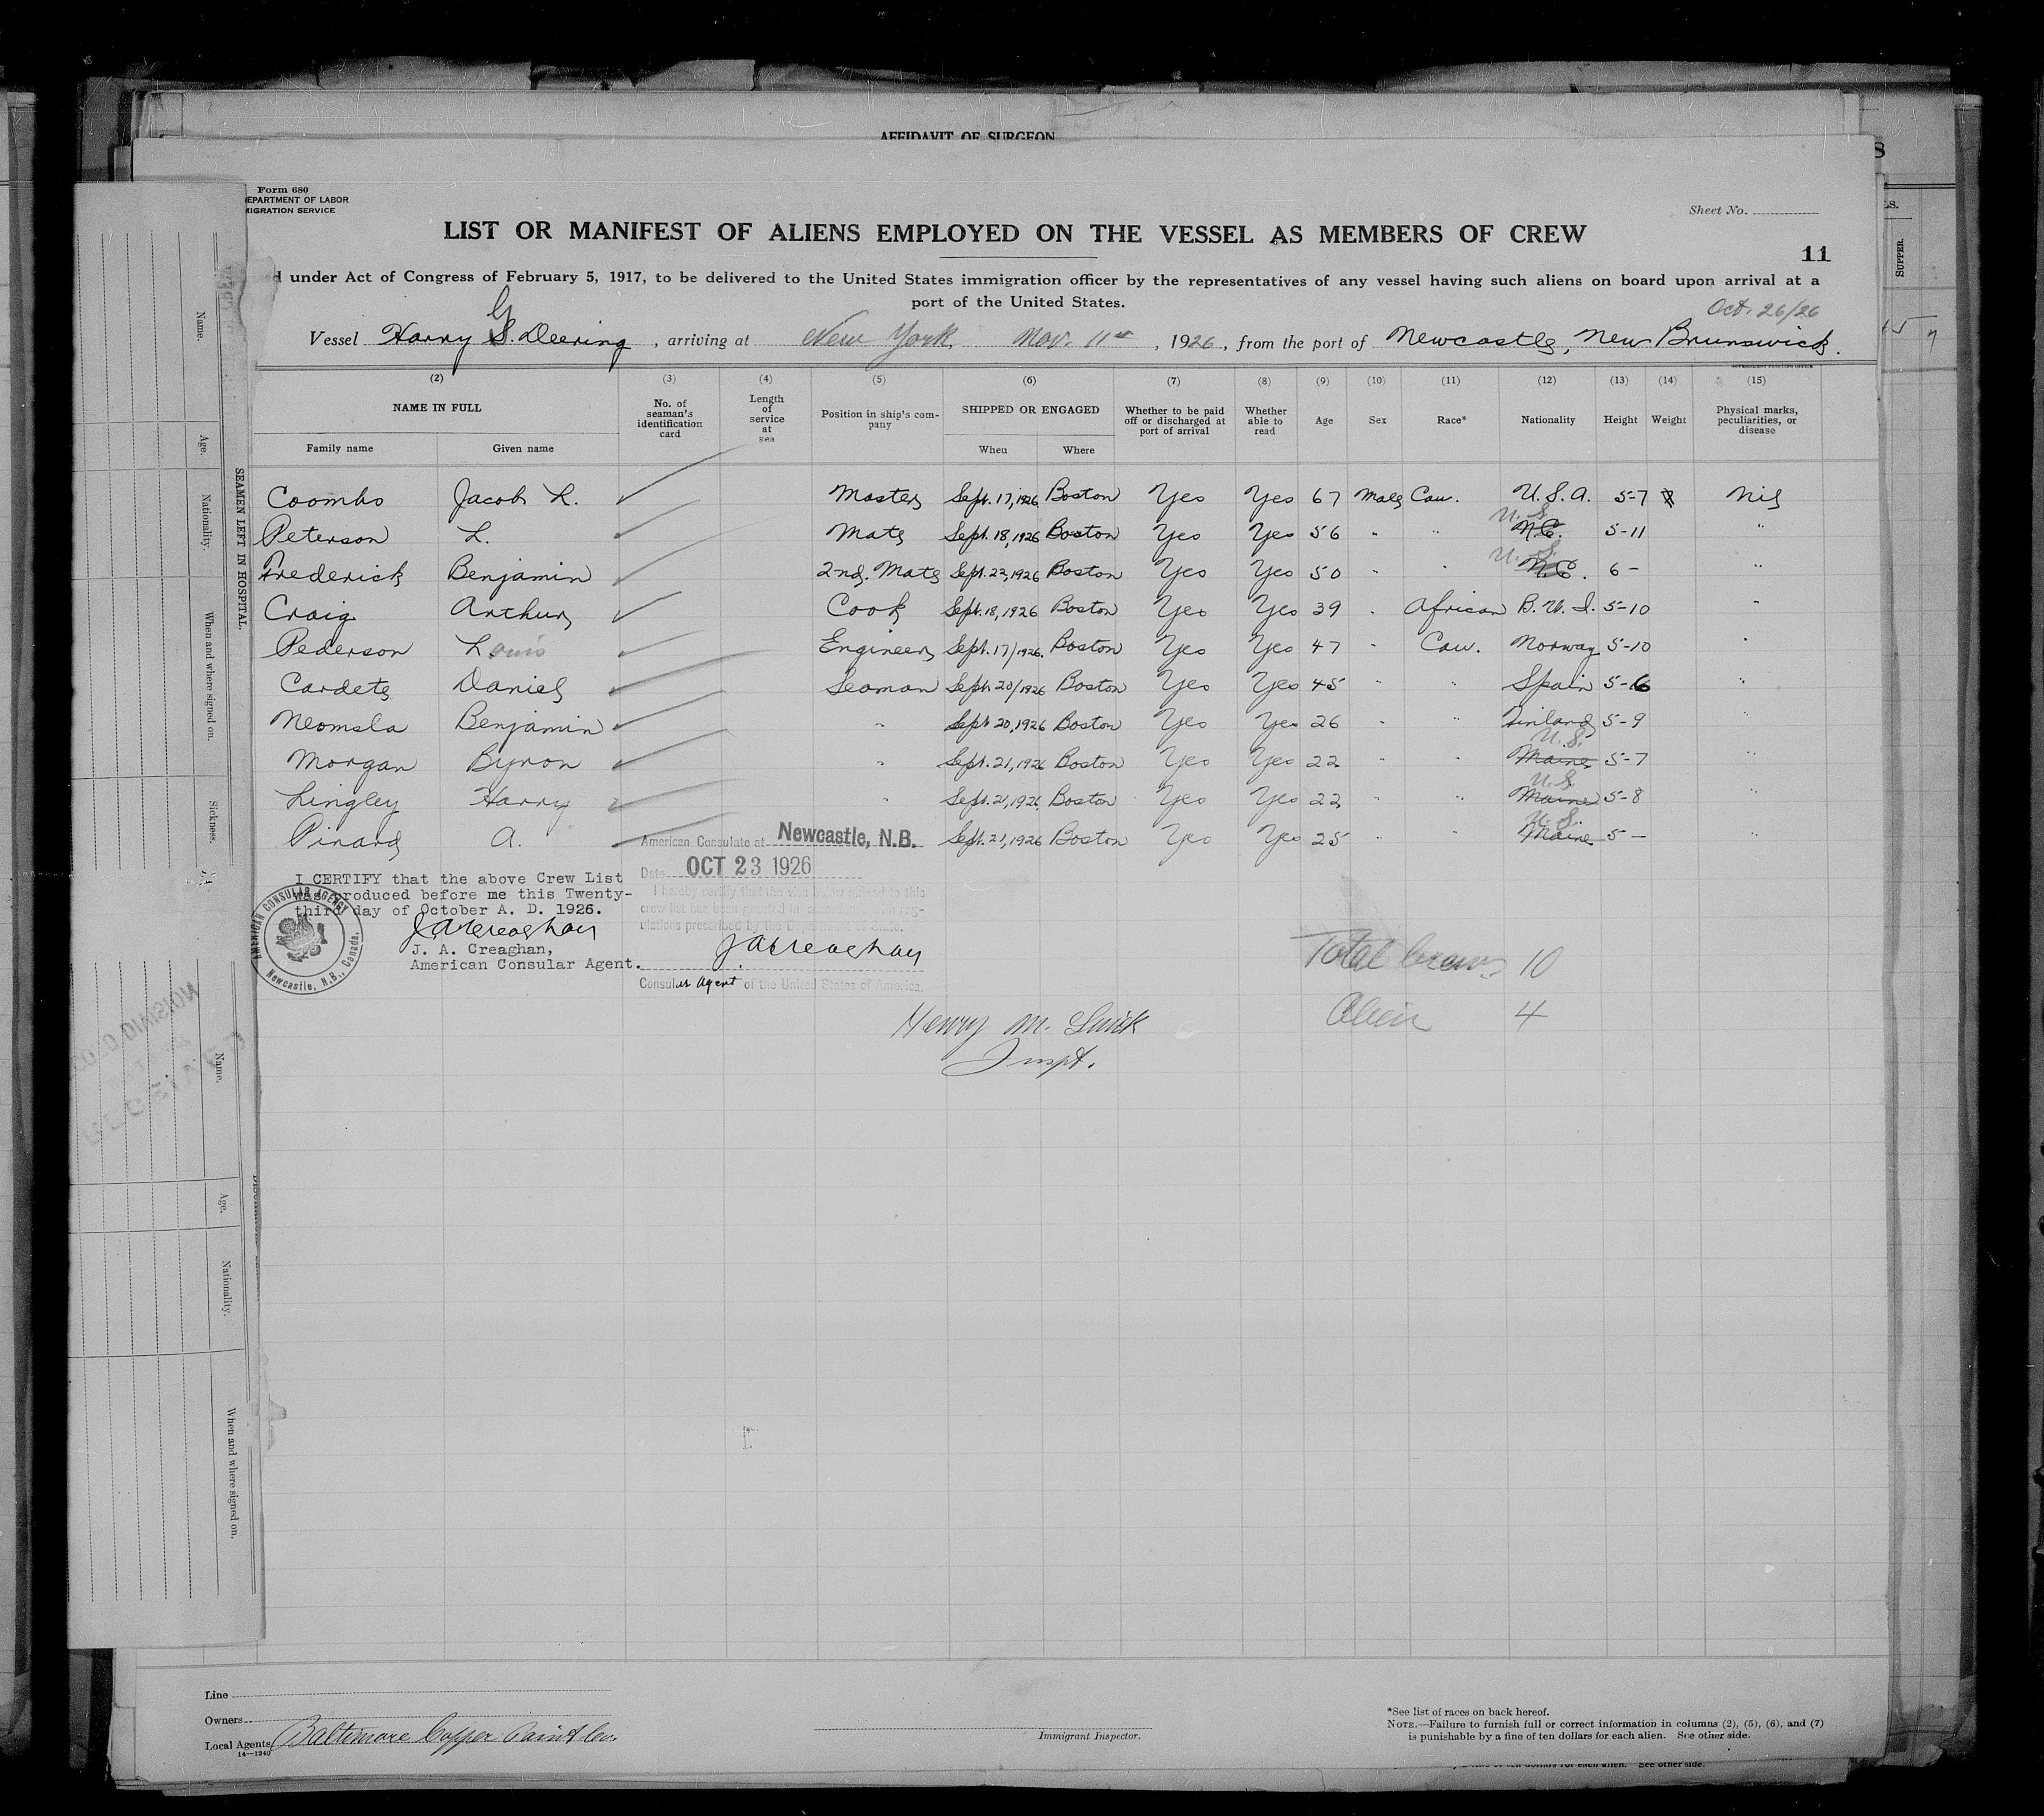 AFFIDAVIT OF SURGEON
Form 680
DEPARTMENT OF LABOR
MIGRATION SERVICE
Sheet No.
LIST OR MANIFEST OF ALIENS EMPLOYED ON THE VESSEL AS MEMBERS OF CREW
11
d under Act of Congress of February 5, 1917, to be delivered to the United States immigration officer by the representatives of any vessel having such aliens on board upon arrival at a
port of the United States.
Oct. 26/26
Vessel Harry G. Deering, arriving at New York, Nov. 11th, 1926, from the port of Newcastle, New Brunswick.
(2) (3) (4) (5) (6) (7) (8) (9) (10) (11) (12) (13) (14) (15)
NAME IN FULL No. of seaman's identification card Length of service at sea Position in ship's company SHIPPED OR ENGAGED Whether to be paid off or discharged at port of arrival Whether able to read Age Sex Race* Nationality Height Weight Physical marks, peculiarities, or disease
Family name Given name When Where
Coombs Jacob L. Master Sept. 17, 1926 Boston Yes Yes 67 Male Cau. U.S.A. 5-7 Nil
Peterson L. Mate Sept. 18, 1926 Boston Yes Yes 56 " " N.C. U.S. 5-11 "
Frederick Benjamin 2nd. Mate Sept. 22, 1926 Boston Yes Yes 50 " " N.C. U.S. 6- "
Craig Arthur Cook Sept. 18, 1926 Boston Yes Yes 39 " African B.W.I. 5-10 "
Pederson Louis Engineer Sept. 17/1926. Boston Yes Yes 47 " Cau. Norway 5-10 "
Cardete Daniel Seaman Sept. 20/1926 Boston Yes Yes 45 " " Spain 5-6 "
Neomsla Benjamin " Sept. 20, 1926 Boston Yes Yes 26 " " Finland 5-9 "
Morgan Byron " Sept. 21, 1926 Boston Yes Yes 22 " " Maine U.S. 5-7 "
Lingley Harry " Sept. 21, 1926 Boston Yes Yes 22 " " Maine U.S. 5-8 "
Pinard A. Sept. 21, 1926 Boston Yes Yes 25 " " Maine U.S. 5- "
American Consulate at Newcastle, N.B.
Date OCT 23 1926
I CERTIFY that the above Crew List
was produced before me this Twenty-
third day of October A. D. 1926.
J A Creaghan
J. A. Creaghan,
American Consular Agent.
AMERICAN CONSULAR AGENCY
Newcastle, N.B., Canada.
I hereby certify that the
crew list has been granted in
ulations prescribed by the Department of State.
J A Creaghan
Consular Agent of the United States of America.
Total Crew 10
Alien 4
Henry M.
Inspt.
SEAMEN LEFT IN HOSPITAL.
Name.
Age.
Nationality.
When and where signed on.
Sickness.
Name.
Age.
Nationality.
When and where signed on.
SUPPER.
Line
Owners
Local Agents Baltimore Copper Paint Co.
14—1240
Immigrant Inspector.
*See list of races on back hereof.
NOTE.—Failure to furnish full or correct information in columns (2), (5), (6), and (7)
is punishable by a fine of ten dollars for each alien. See other side.